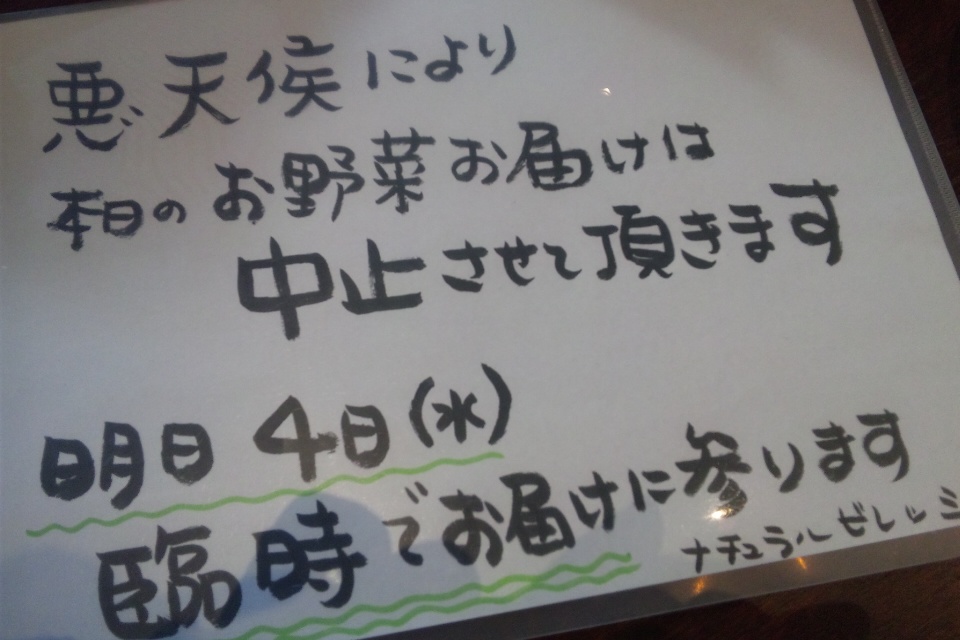 悪天候により
本日のお野菜お届けは
中止させて頂きます
明日 4日(水)
臨時でお届けに参ります
ナチュラルビレッジ